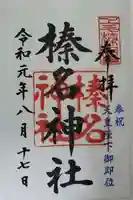 奉拝
奉祝
天皇陛下御即位
榛名神社
榛名
神社
令和元年八月十七日